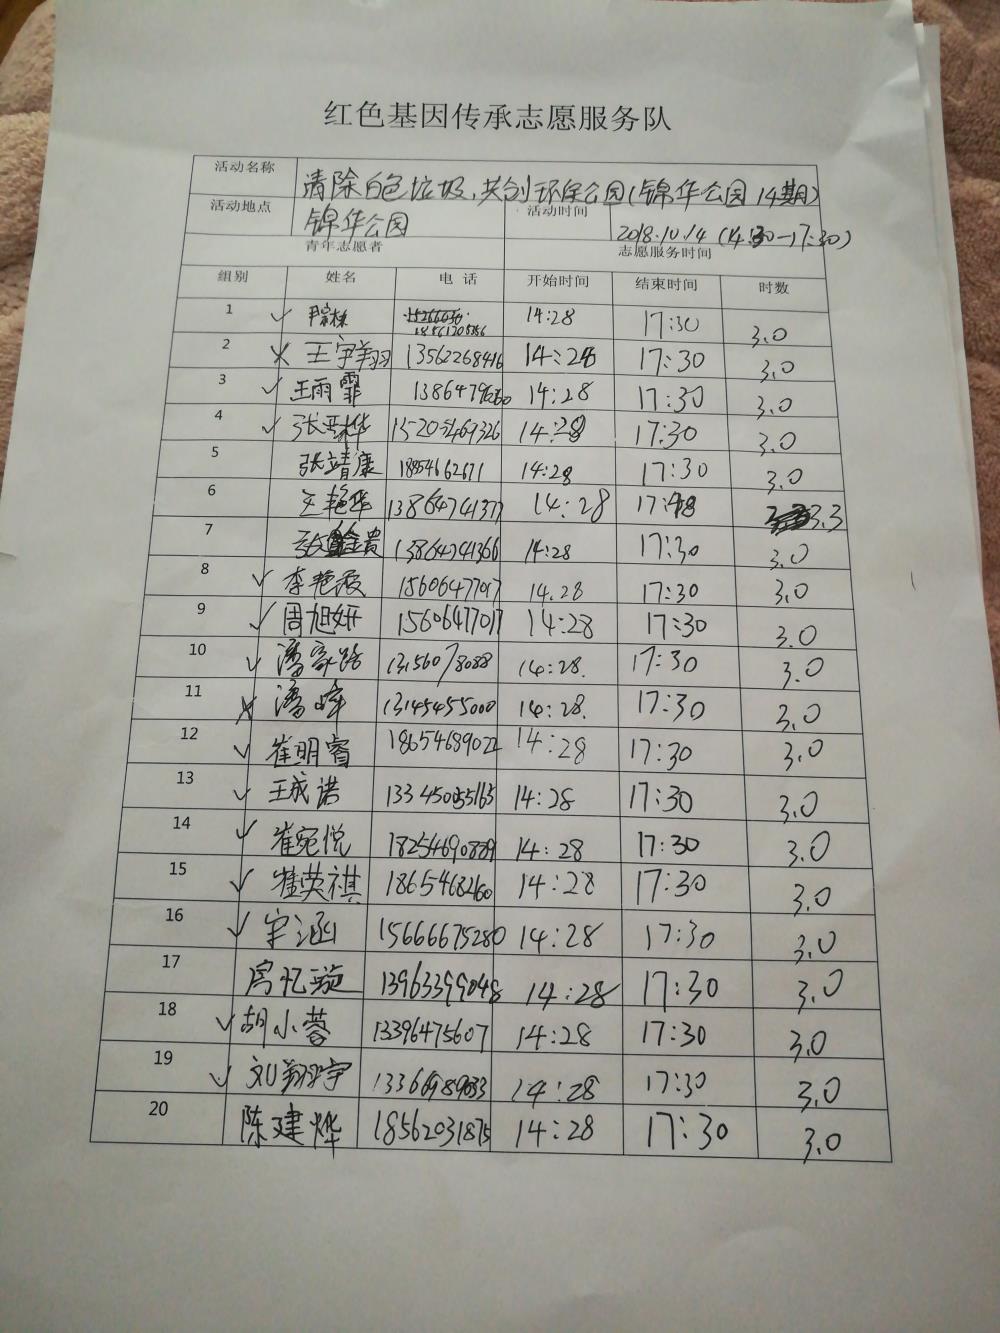 红色基因传承志愿服务队
活动名称 清除白色垃圾,共创环保公园(锦华公园14期)
活动地点 锦华公园 活动时间 2018.10.14 (14:30—17:30)
青年志愿者 志愿服务时间
组别 姓名 电 话 开始时间 结束时间 时数
1 ✓ 14:28 17:30 3.0
2 王宇翔 13562268416 14:28 17:30 3.0
3 ✓ 王雨霏 14:28 17:30 3.0
4 ✓ 14:28 17:30 3.0
5 张靖康 18854662671 14:28 17:30 3.0
6 王艳华 13864741377 14:28 17:48 3.3
7 13864741366 14:28 17:30 3.0
8 ✓ 李艳霞 15606477017 14.28 17:30 3.0
9 ✓ 周旭妍 15606477017 14:28 17:30 3.0
10 ✓ 13156078088 14:28. 17:30 3.0
11 潘峰 13145455000 14:28. 17:30 3.0
12 ✓ 崔明睿 14:28 17:30 3.0
13 ✓ 王成诺 14:28 17:30 3.0
14 ✓ 崔宛悦 14:28 17:30 3.0
15 ✓ 14:28 17:30 3.0
16 ✓ 宇涵 15666675280 14:28 17:30 3.0
17 房忆璇 13963399048 14:28 17:30 3.0
18 ✓ 胡小蓉 13396475607 14:28 17:30 3.0
19 ✓ 刘翔宇 14:28 17:30 3.0
20 陈建烨 18562031875 14:28 17:30 3.0